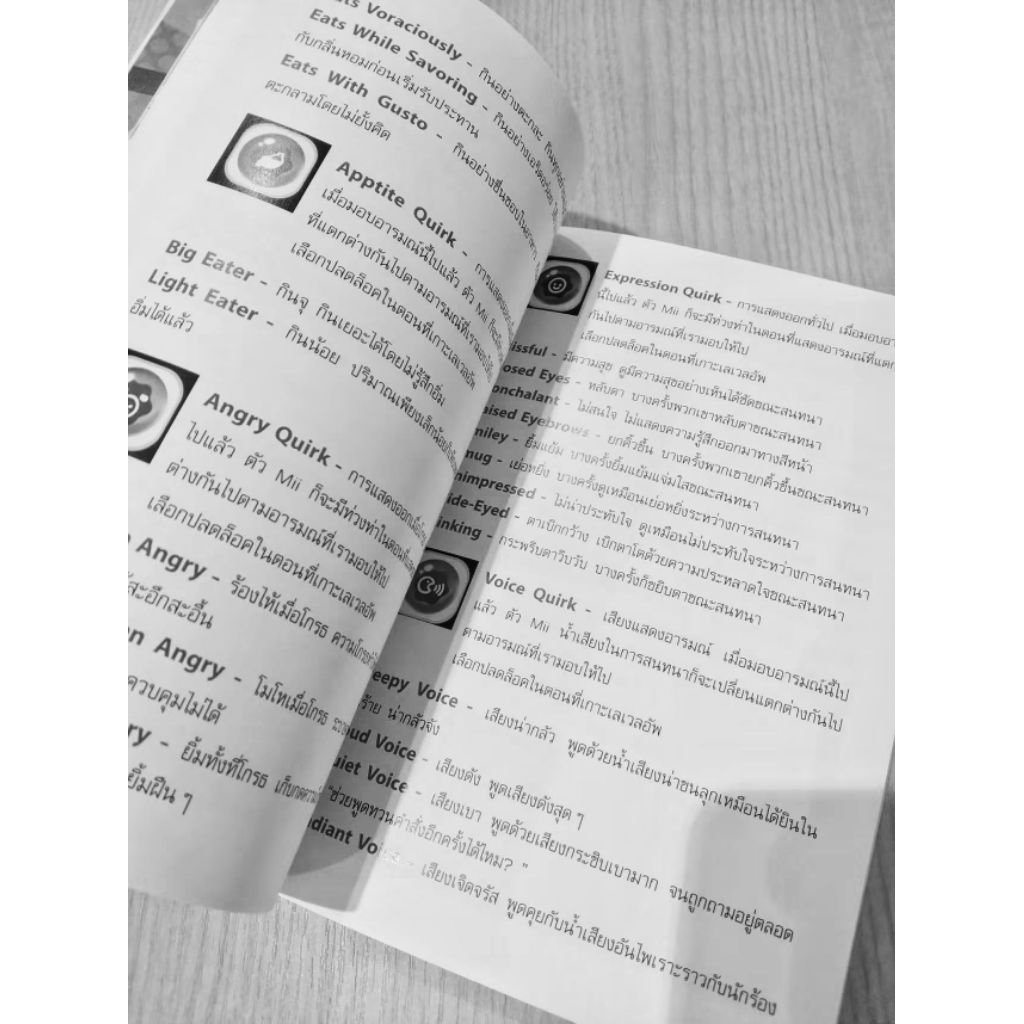 Voraciously - กินอย่างตะกละ
Eats While Savoring - กินอย่างเอร็ดอร่อย
กับกลิ่นหอมก่อนเริ่มรับประทาน
Eats With Gusto - กินอย่างชื่นชอบในอาหาร
ตะกลามโดยไม่ยั้งคิด
Apptite Quirk - การแสดงออก
เมื่อมอบอารมณ์นี้ไปแล้ว ตัว Mii ก็จะมี
ที่แตกต่างกันไปตามอารมณ์ที่เรามอบให้
เลือกปลดล็อคในตอนที่เกาะเลเวลอัพ
Big Eater - กินจุ กินเยอะได้โดยไม่รู้สึกอิ่ม
Light Eater - กินน้อย ปริมาณเพียงเล็กน้อย
อิ่มได้แล้ว
Angry Quirk - การแสดงออกเมื่อ
ไปแล้ว ตัว Mii ก็จะมีท่วงท่าในตอน
ต่างกันไปตามอารมณ์ที่เรามอบให้ไป
เลือกปลดล็อคในตอนที่เกาะเลเวลอัพ
Angry - ร้องไห้เมื่อโกรธ ความโกรธ
สะอึกสะอื้น
Angry - โมโหเมื่อโกรธ
ควบคุมไม่ได้
- ยิ้มทั้งที่โกรธ เก็บกดความ
ยิ้มฝืน ๆ
Expression Quirk - การแสดงออกทั่วไป เมื่อมอบ
นี้ไปแล้ว ตัว Mii ก็จะมีท่วงท่าในตอนที่แสดงอารมณ์ที่แตก
กันไปตามอารมณ์ที่เรามอบให้ไป
เลือกปลดล็อคในตอนที่เกาะเลเวลอัพ
- มีความสุข ดูมีความสุขอย่างเห็นได้ชัดขณะสนทนา
Eyes - หลับตา บางครั้งพวกเขาหลับตาขณะสนทนา
- ไม่สนใจ ไม่แสดงความรู้สึกออกมาทางสีหน้า
Eyebrows - ยกคิ้วขึ้น บางครั้งพวกเขายกคิ้วขึ้นขณะสนทนา
- ยิ้มแย้ม บางครั้งยิ้มแย้มแจ่มใสขณะสนทนา
- เย่อหยิ่ง บางครั้งดูเหมือนเย่อหยิ่งระหว่างการสนทนา
- ไม่น่าประทับใจ ดูเหมือนไม่ประทับใจระหว่างการสนทนา
- ตาเบิกกว้าง เบิกตาโตด้วยความประหลาดใจขณะสนทนา
- กระพริบตาวิบวับ บางครั้งก็ขยิบตาขณะสนทนา
Voice Quirk - เสียงแสดงอารมณ์ เมื่อมอบอารมณ์นี้ไป
แล้ว ตัว Mii น้ำเสียงในการสนทนาก็จะเปลี่ยนแตกต่างกันไป
ตามอารมณ์ที่เรามอบให้ไป
เลือกปลดล็อคในตอนที่เกาะเลเวลอัพ
Voice - เสียงน่ากลัว พูดด้วยน้ำเสียงน่าขนลุกเหมือนได้ยินใน
ร้าย น่ากลัวจัง
Voice - เสียงดัง พูดเสียงดังสุด ๆ
Voice - เสียงเบา พูดด้วยเสียงกระซิบเบามาก จนถูกถามอยู่ตลอด
"ช่วยพูดทวนคำสั่งอีกครั้งได้ไหม? "
- เสียงเจิดจรัส พูดคุยกับน้ำเสียงอันไพเราะราวกับนักร้อง